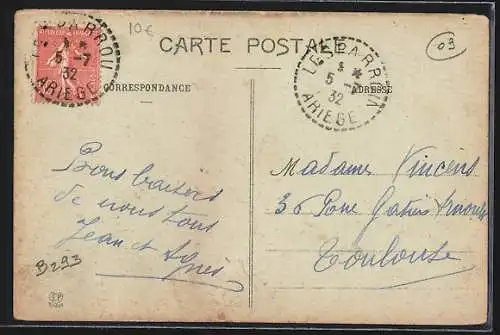 10€
CARTE POSTALE
03
LESPARROU
5 -7
32
ARIEGE
LESPARROU
5 -7
32
ARIEGE
CORRESPONDANCE
ADRESSE
Bons baisers
de nous tous
Jean et Agnès
B293
Madame Vincens
36 Rue
Toulouse